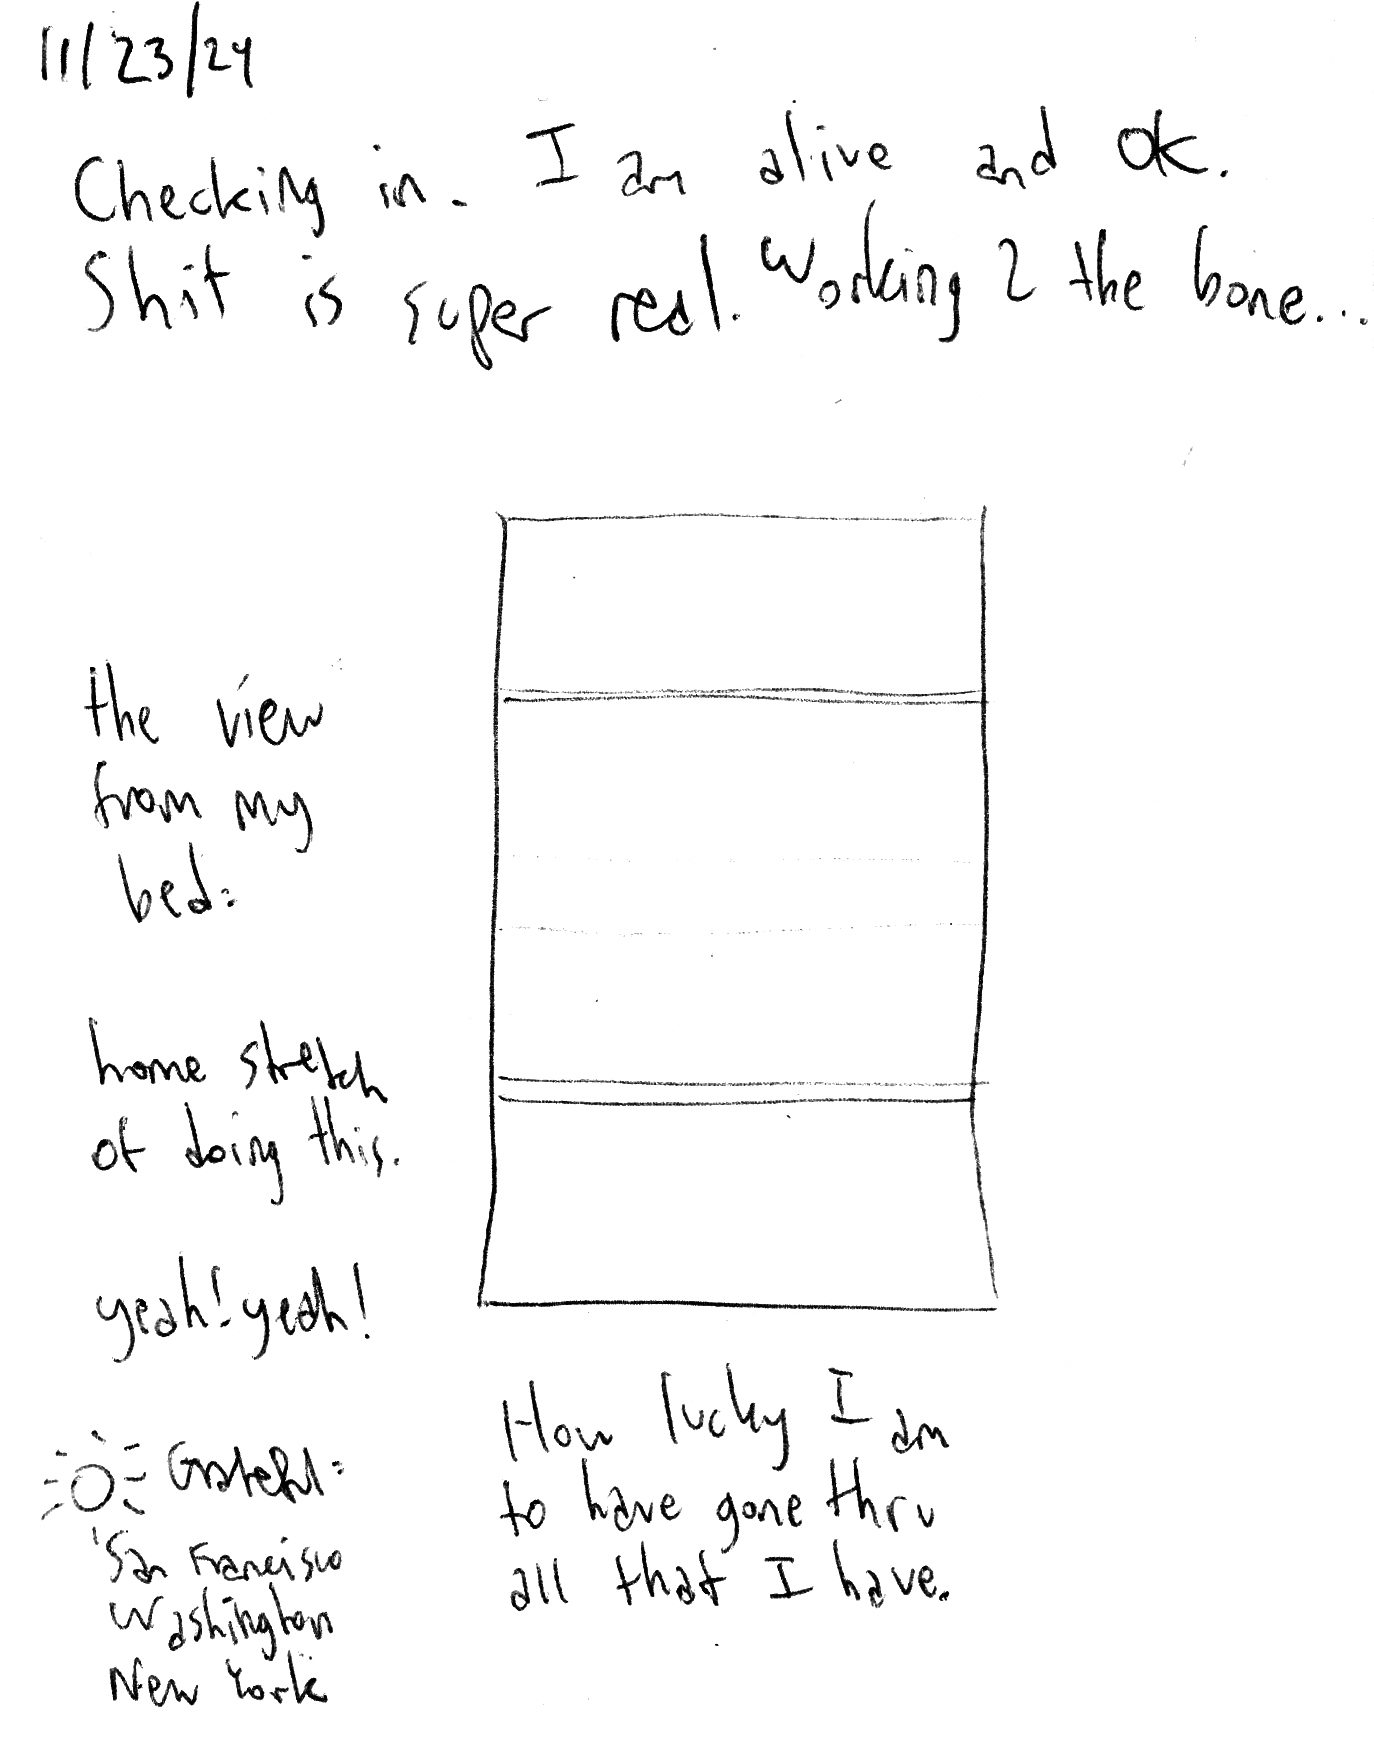 11/23/24
Checking in. I am alive and OK.
Shit is super real. Working 2 the bone...
the view
from my
bed:
home stretch
of doing this.
yeah! yeah!
Grateful:
San Francisco
Washington
New York
How lucky I am
to have gone thru
all that I have.